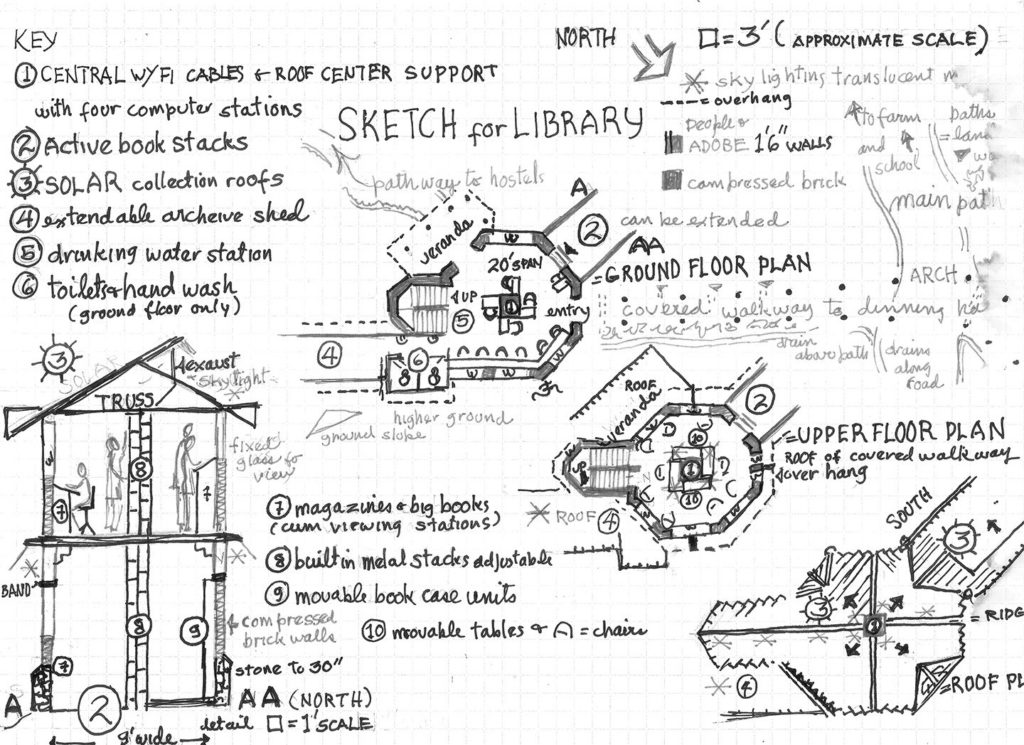 KEY
① CENTRAL WYFI CABLES & ROOF CENTER SUPPORT
with four computer stations
② Active book stacks
③ SOLAR collection roofs
④ extendable archeive shed
⑤ drinking water station
⑥ toilets & hand wash
(ground floor only)
NORTH
□ = 3' (APPROXIMATE SCALE)
sky lighting translucent
---- = overhang
People &
ADOBE 1'6" WALLS
compressed brick
SKETCH for LIBRARY
pathway to hostels
to farm
and
school
paths
main path
ARCH
veranda
A
②
can be extended
AA
= GROUND FLOOR PLAN
20' SPAN
W
UP
⑤
①
entry
④
⑥
W
W
W
covered walkway to dinning
drain
above path
drains
along
road
higher ground
ground slope
③
SOLAR
exaust
skylight
TRUSS
fixed
glass for
view
⑧
⑦
7
BAND
⑧
⑨
⑦
compressed
brick walls
stone to 30"
A
②
9' wide
AA (NORTH)
detail □ = 1' SCALE
⑦ magazines & big books
(cum viewing stations)
⑧ built in metal stacks adjustable
⑨ movable book case units
⑩ movable tables & = chairs
ROOF
veranda
②
= UPPER FLOOR PLAN
ROOF of covered walkway
over hang
⑩
①
⑩
UP
ROOF
④
SOUTH
③
③
①
= RIDGE
④
= ROOF